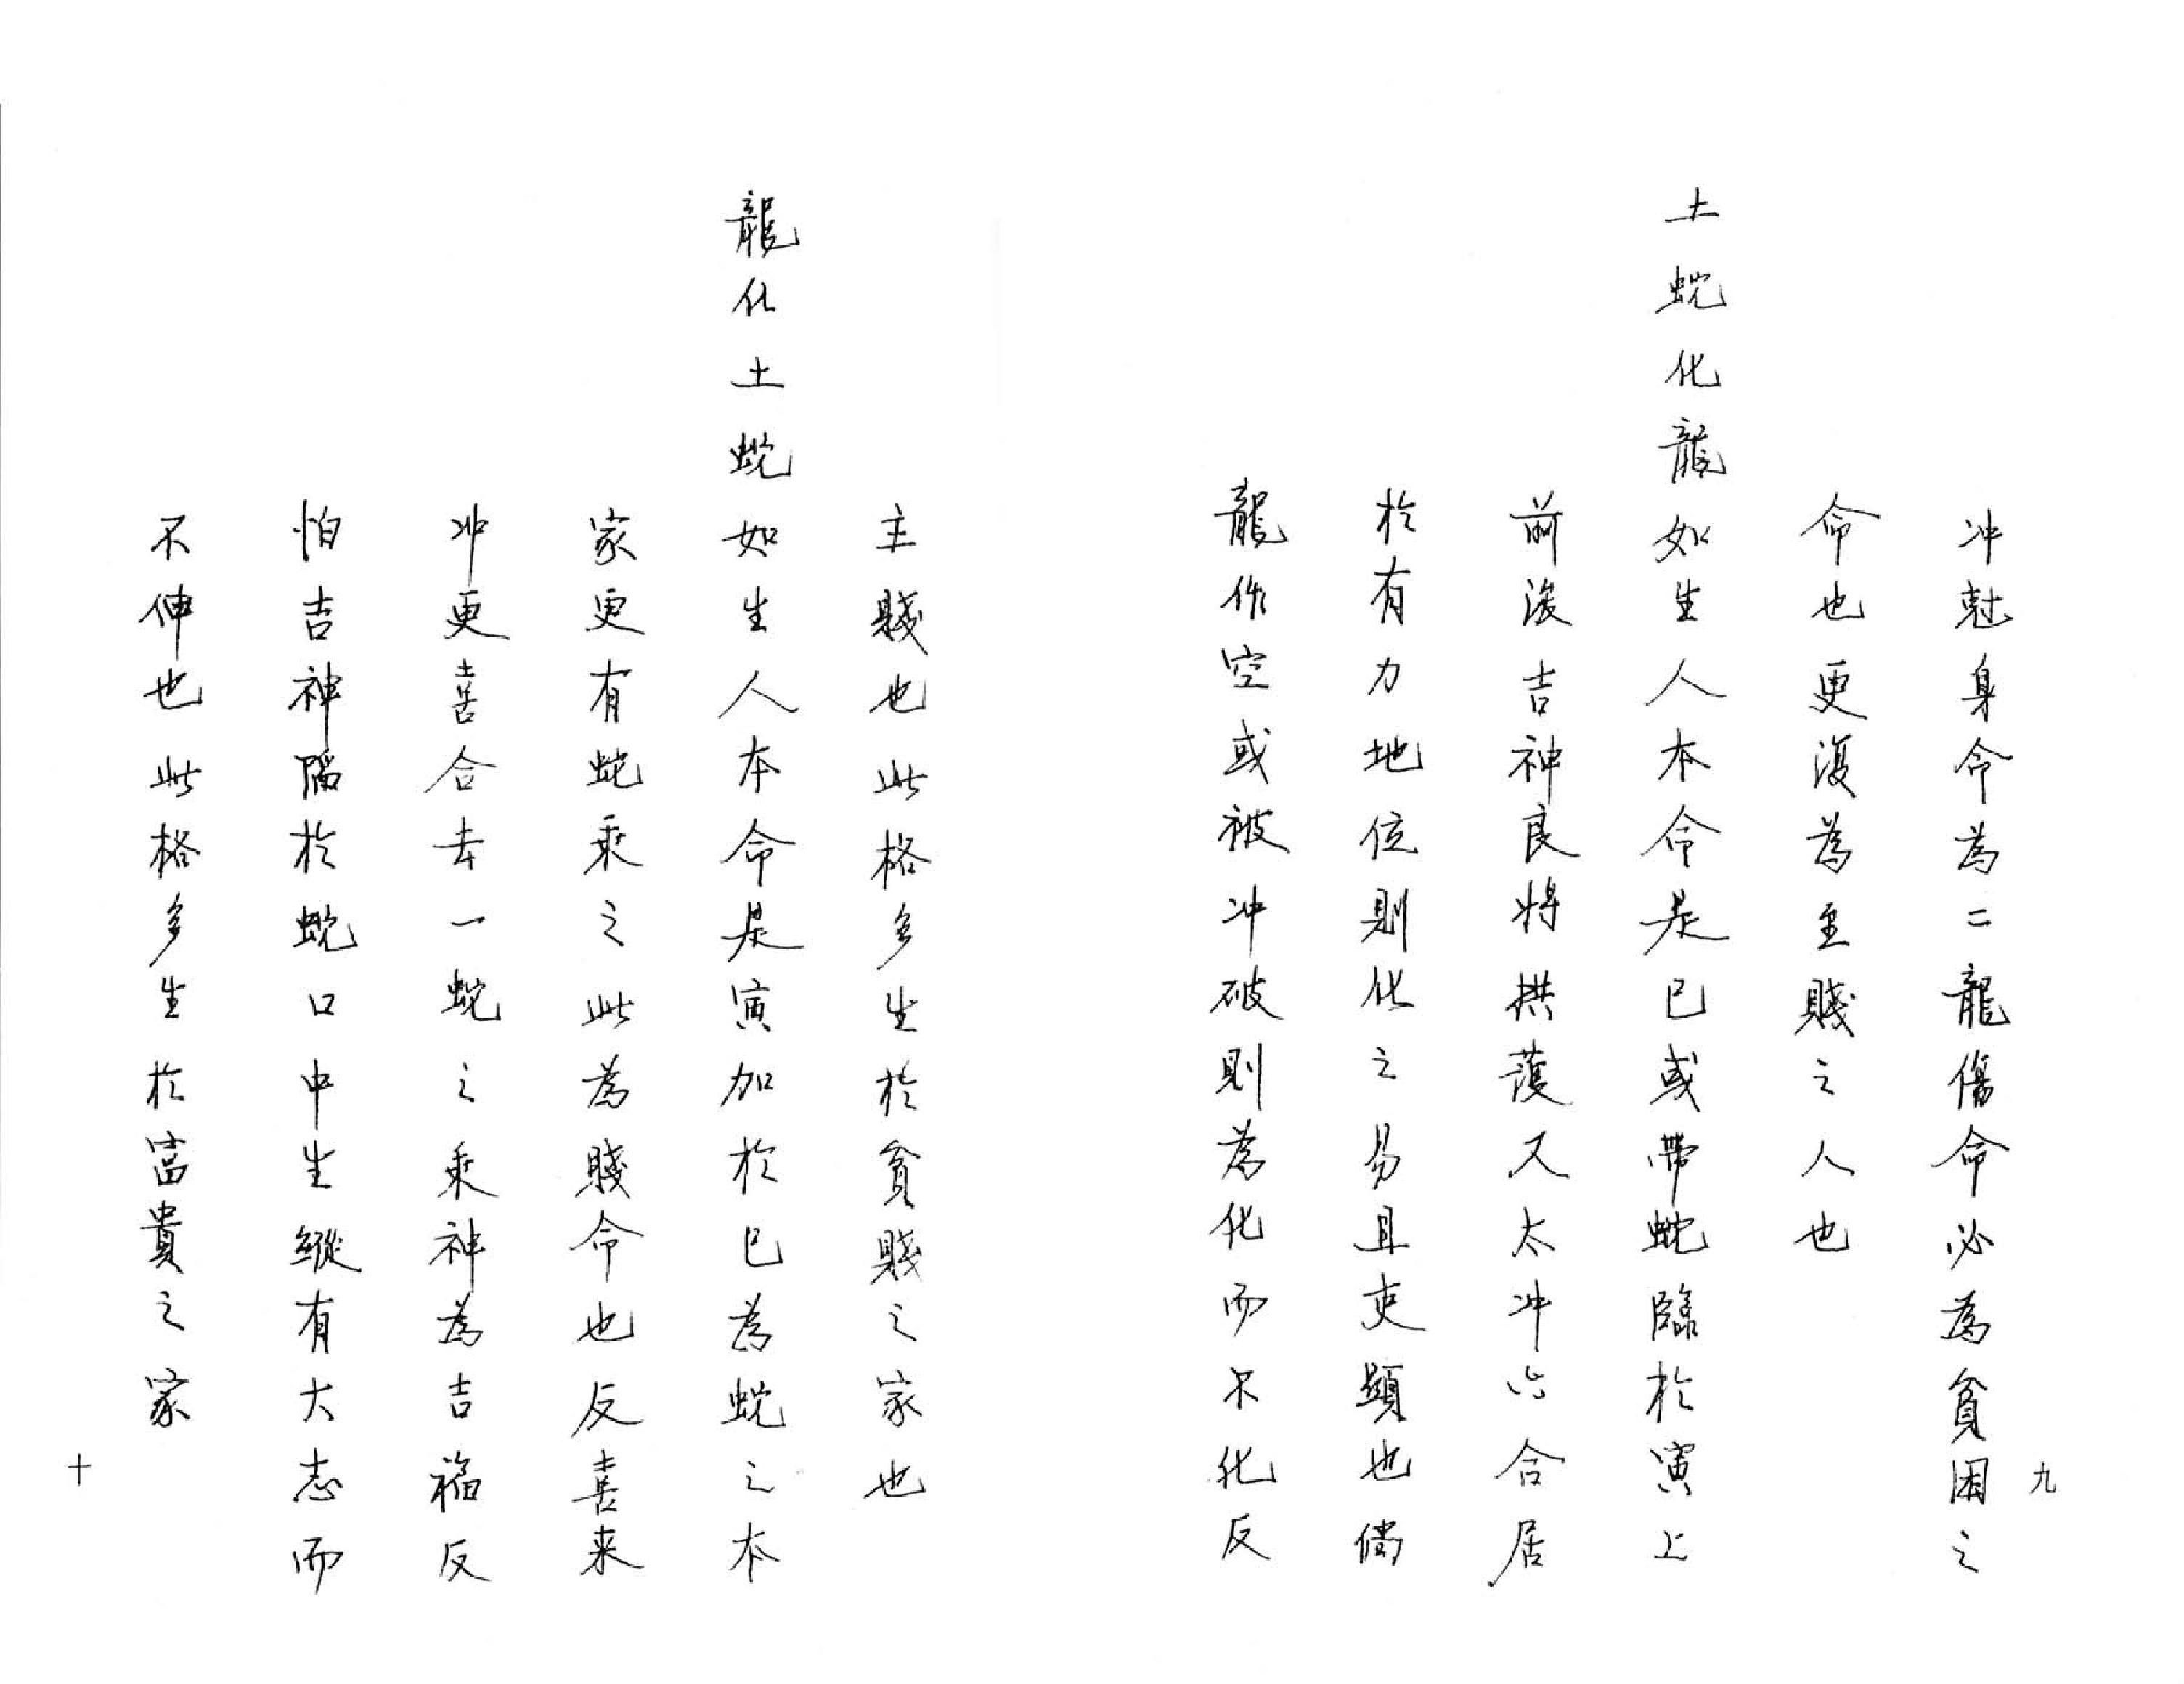 九
冲尅身命為二龍傷命必為貧困之
命也更復為至賤之人也
土蛇化龍如生人本命是巳或帶蛇臨於寅上
前後吉神良将拱護又太冲六合居
於有力地位則化之易且吏顕也倘
龍作空或被冲破則為化而不化反
主賤也此格多生於貧賤之家也
龍化土蛇如生人本命是寅加於巳為蛇之本
家更有蛇乘之此為賤命也反喜来
冲更喜合去一蛇之乘神為吉福反
怕吉神陷於蛇口中生縱有大志而
不伸也此格多生於富貴之家
十